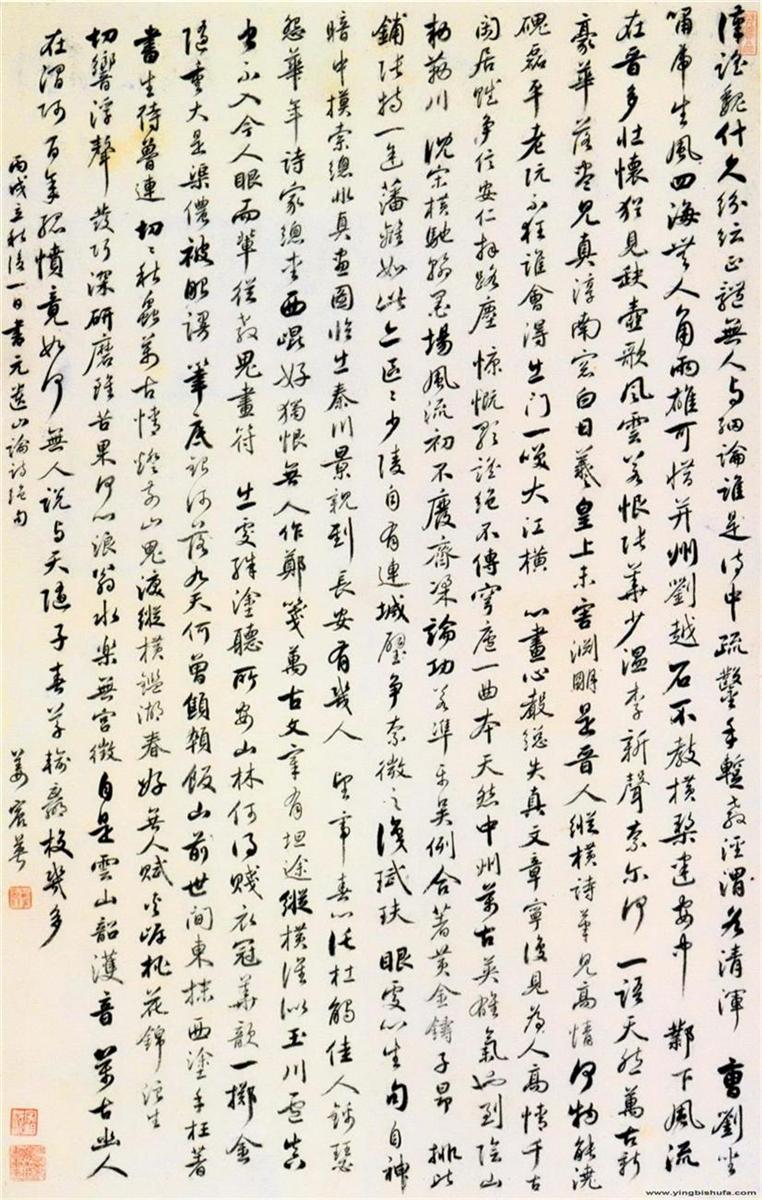 漢謠魏什久紛紜正體無人与細論誰是詩中疏鑿手暫教涇渭各清渾 曹劉坐
嘯虎生風四海無人角兩雄可惜并州劉越石不教橫槊建安中 鄴下風流
在晉多壯懷猶見缺壺歌風雲若恨張華少溫李新聲奈尔何 一語天然萬古新
豪華落盡見真淳南窗白日羲皇上未害淵明是晉人縱橫詩筆見高情何物能澆
磈磊平老阮不狂誰會得出門一笑大江橫 心畫心聲總失真文章寧復見為人高情千古
閒居賦爭信安仁拜路塵 慷慨歌謠絕不傳穹廬一曲本天然中州萬古英雄氣也到陰山
敕勒川 沈宋橫馳翰墨場風流初不廢齊梁論功若準平吳例合著黃金鑄子昂 排比
鋪張特一途藩籬如此亦區區少陵自有連城璧爭奈微之識珷玞 眼處心生句自神
暗中摸索總非真畫圖臨出秦川景親到長安有幾人 望帝春心託杜鵑佳人錦瑟
怨華年詩家總愛西崐好獨恨無人作鄭箋萬古文章有坦途縱橫誰似玉川盧真
書不入今人眼兒輩從教鬼畫符 出處殊塗聽所安山林何得賤衣冠華歆一擲金
隨重大是渠儂被眼謾 筆底銀河落九天何曾顦顇飯山前世間東抹西塗手枉著
書生待魯連 切切秋蟲萬古情燈前山鬼淚縱橫鑑湖春好無人賦夾岸桃花錦浪生
切響浮聲發巧深研磨雖苦果何心浪翁水樂無宮徵自是雲山韶濩音 萬古幽人
在澗阿百年孤憤竟如何無人說與天隨子春草輸贏校幾多
丙戌立秋後一日書元遺山論詩絕句
姜宸英
www.yingbishufa.com